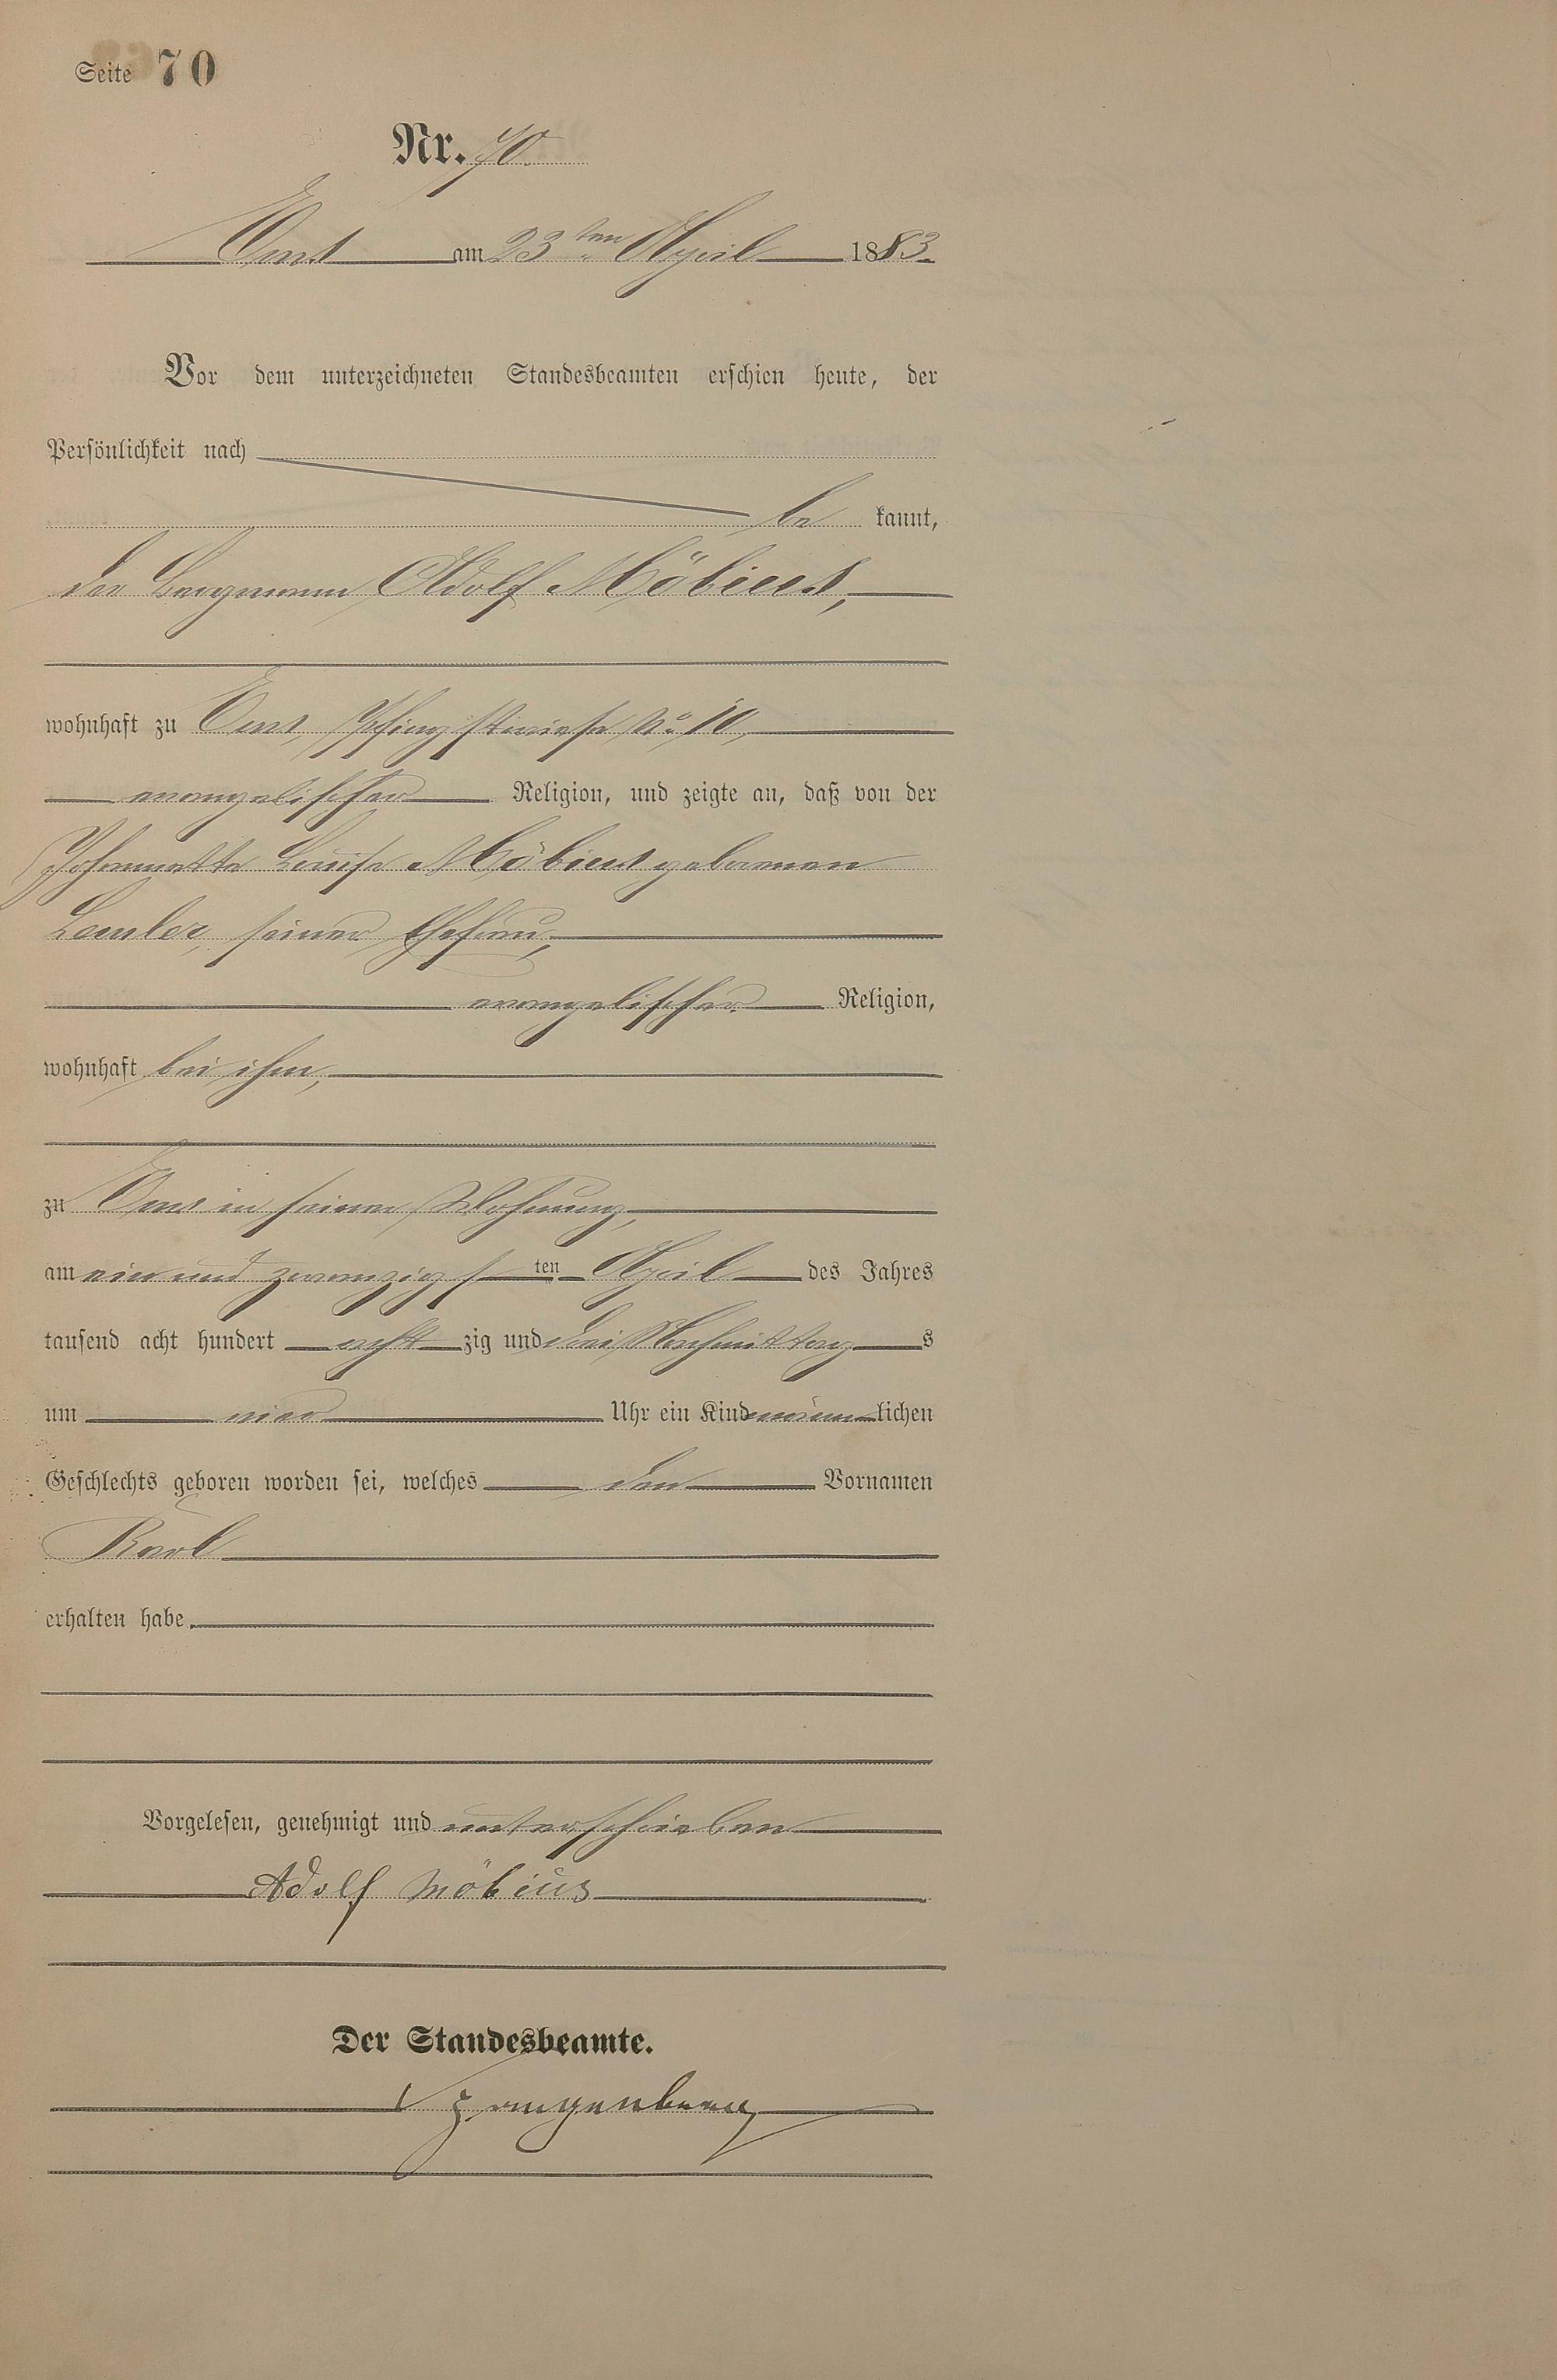 Seite 70
Nr. 70.
Ems am 23ten April 1883.
Vor dem unterzeichneten Standesbeamten erschien heute, der
Persönlichkeit nach
be kannt,
der Bergmann Adolf Möbius,
wohnhaft zu Ems, Pfingstwiese No. 10,
evangelischer Religion, und zeigte an, daß von der
Johannette Louise Möbius geborenen
Lemler, seiner Ehefrau,
evangelischer Religion,
wohnhaft bei ihm,
zu Ems in seiner Wohnung,
am ein und zwanzigsten April des Jahres
tausend acht hundert acht zig und drei Nachmittags
um vier Uhr ein Kind männlichen
Geschlechts geboren worden sei, welches den Vornamen
Karl
erhalten habe.
Vorgelesen, genehmigt und unterschrieben
Adolf Möbius
Der Standesbeamte.